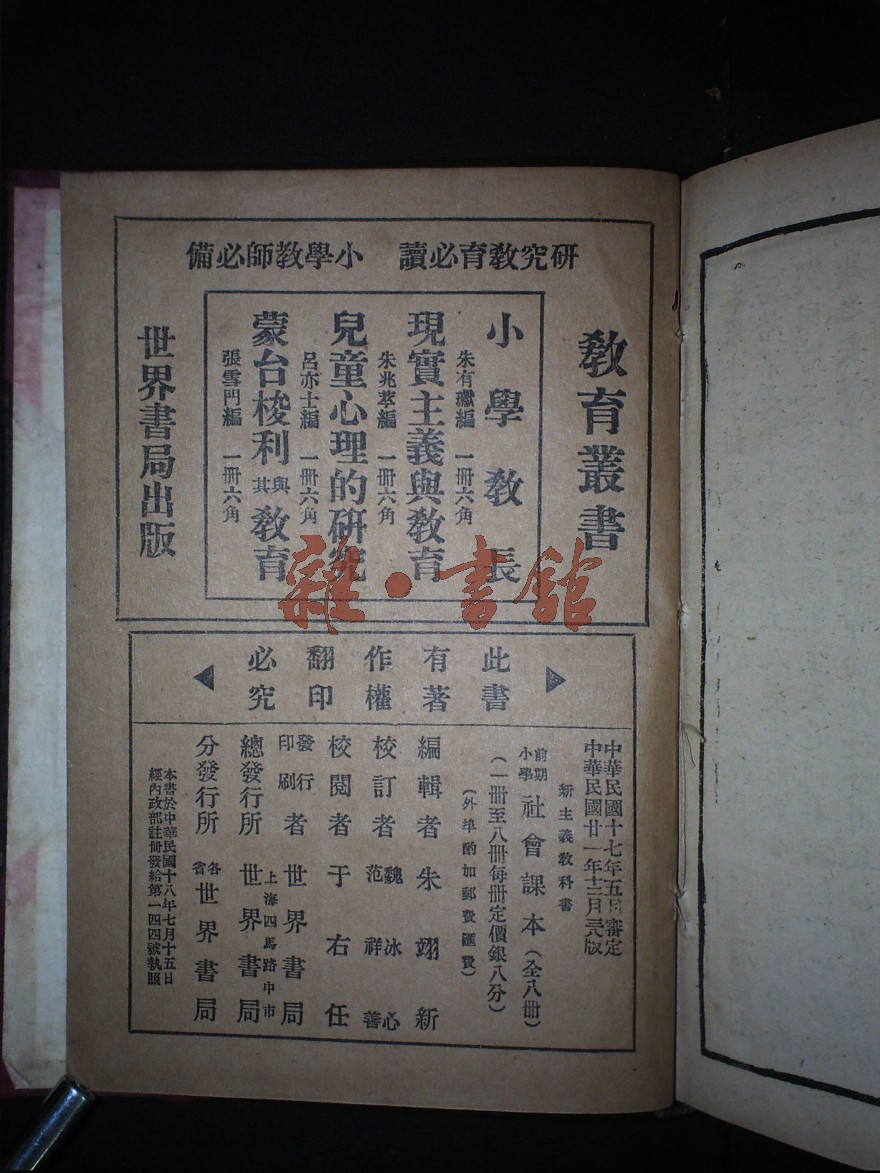 研究教育必讀 小學教師必備
教育叢書
小學教長
朱有瓛編 一冊六角
現實主義與教育
朱兆萃編 一冊六角
兒童心理的研究
呂亦士編 一冊六角
蒙台梭利與其教育
張雪門編 一冊六角
世界書局出版
雜·書館
此書有著作權翻印必究
中華民國十七年五月審定
中華民國廿一年十二月 版
新主義教科書
前期小學 社會課本(全八冊)
(一冊至八冊每冊定價銀八分)
(外埠酌加郵費匯費)
編輯者 朱翊新
校訂者 魏冰心 范祥善
校閱者 于右任
發行印刷者 世界書局
總發行所 上海四馬路中市 世界書局
分發行所 各省世界書局
本書於中華民國十八年七月十五日
經內政部註冊發給第一四四號執照